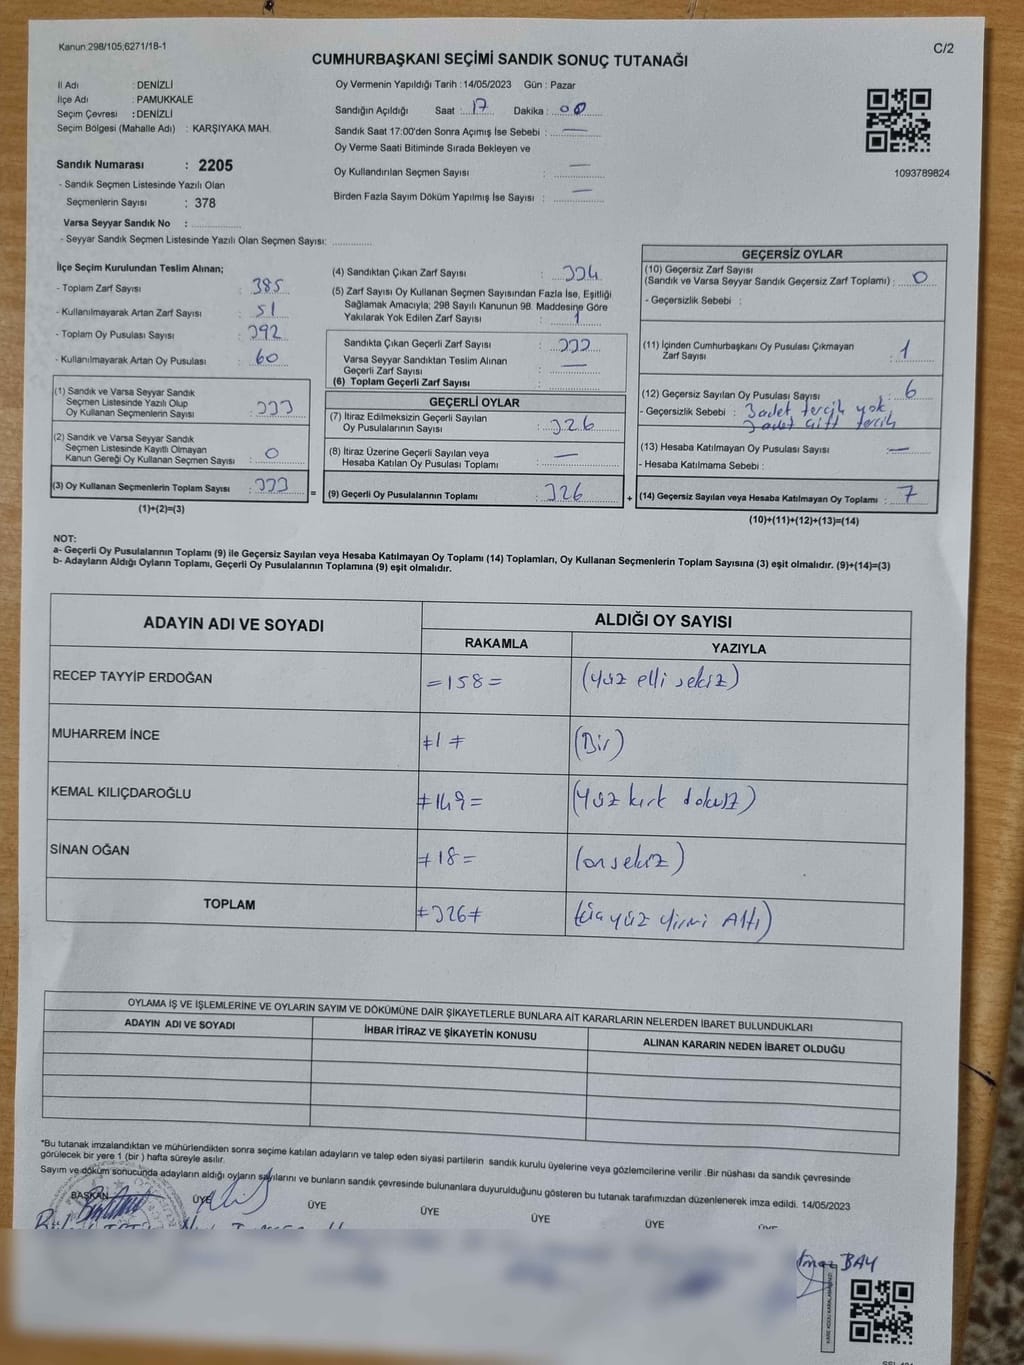 Kanun:298/105;6271/18-1
C/2
CUMHURBAŞKANI SEÇİMİ SANDIK SONUÇ TUTANAĞI
İl Adı : DENİZLİ
İlçe Adı : PAMUKKALE
Seçim Çevresi : DENİZLİ
Seçim Bölgesi (Mahalle Adı) : KARŞIYAKA MAH.
Sandık Numarası : 2205
- Sandık Seçmen Listesinde Yazılı Olan
Seçmenlerin Sayısı : 378
Varsa Seyyar Sandık No :
- Seyyar Sandık Seçmen Listesinde Yazılı Olan Seçmen Sayısı:
Oy Vermenin Yapıldığı Tarih : 14/05/2023 Gün : Pazar
Sandığın Açıldığı Saat : 17 Dakika : 00
Sandık Saat 17:00'den Sonra Açımış İse Sebebi : —
Oy Verme Saati Bitiminde Sırada Bekleyen ve
Oy Kullandırılan Seçmen Sayısı : —
Birden Fazla Sayım Döküm Yapılmış İse Sayısı : —
1093789824
İlçe Seçim Kurulundan Teslim Alınan;
- Toplam Zarf Sayısı : 385
- Kullanılmayarak Artan Zarf Sayısı : 51
- Toplam Oy Pusulası Sayısı : 392
- Kullanılmayarak Artan Oy Pusulası : 60
(1) Sandık ve Varsa Seyyar Sandık
Seçmen Listesinde Yazılı Olup
Oy Kullanan Seçmenlerin Sayısı : 333
(2) Sandık ve Varsa Seyyar Sandık
Seçmen Listesinde Kayıtlı Olmayan
Kanun Gereği Oy Kullanan Seçmen Sayısı : 0
(3) Oy Kullanan Seçmenlerin Toplam Sayısı : 333
(1)+(2)=(3)
=
(4) Sandıktan Çıkan Zarf Sayısı : 334
(5) Zarf Sayısı Oy Kullanan Seçmen Sayısından Fazla İse, Eşitliği
Sağlamak Amacıyla; 298 Sayılı Kanunun 98. Maddesine Göre
Yakılarak Yok Edilen Zarf Sayısı : 1
Sandıkta Çıkan Geçerli Zarf Sayısı : 333
Varsa Seyyar Sandıktan Teslim Alınan
Geçerli Zarf Sayısı : —
(6) Toplam Geçerli Zarf Sayısı :
GEÇERLİ OYLAR
(7) İtiraz Edilmeksizin Geçerli Sayılan
Oy Pusulalarının Sayısı : 326
(8) İtiraz Üzerine Geçerli Sayılan veya
Hesaba Katılan Oy Pusulası Toplamı : —
(9) Geçerli Oy Pusulalarının Toplamı : 326
+
GEÇERSİZ OYLAR
(10) Geçersiz Zarf Sayısı
(Sandık ve Varsa Seyyar Sandık Geçersiz Zarf Toplamı) : 0
- Geçersizlik Sebebi :
(11) İçinden Cumhurbaşkanı Oy Pusulası Çıkmayan
Zarf Sayısı : 1
(12) Geçersiz Sayılan Oy Pusulası Sayısı : 6
- Geçersizlik Sebebi : 3 adet tercih yok
3 adet çift tercih
(13) Hesaba Katılmayan Oy Pusulası Sayısı : —
- Hesaba Katılmama Sebebi :
(14) Geçersiz Sayılan veya Hesaba Katılmayan Oy Toplamı : 7
(10)+(11)+(12)+(13)=(14)
NOT:
a- Geçerli Oy Pusulalarının Toplamı (9) ile Geçersiz Sayılan veya Hesaba Katılmayan Oy Toplamı (14) Toplamları, Oy Kullanan Seçmenlerin Toplam Sayısına (3) eşit olmalıdır. (9)+(14)=(3)
b- Adayların Aldığı Oyların Toplamı, Geçerli Oy Pusulalarının Toplamına (9) eşit olmalıdır.
ADAYIN ADI VE SOYADI
ALDIĞI OY SAYISI
RAKAMLA YAZIYLA
RECEP TAYYİP ERDOĞAN =158= (yüz elli sekiz)
MUHARREM İNCE ≠1≠ (Bir)
KEMAL KILIÇDAROĞLU ≠149= (Yüz kırk dokuz)
SİNAN OĞAN ≠18= (on sekiz)
TOPLAM ≠326≠ (üçyüz yirmi Altı)
OYLAMA İŞ VE İŞLEMLERİNE VE OYLARIN SAYIM VE DÖKÜMÜNE DAİR ŞİKAYETLERLE BUNLARA AİT KARARLARIN NELERDEN İBARET BULUNDUKLARI
ADAYIN ADI VE SOYADI İHBAR İTİRAZ VE ŞİKAYETİN KONUSU ALINAN KARARIN NEDEN İBARET OLDUĞU
*Bu tutanak imzalandıktan ve mühürlendikten sonra seçime katılan adayların ve talep eden siyasi partilerin sandık kurulu üyelerine veya gözlemcilerine verilir .Bir nüshası da sandık çevresinde
görülecek bir yere 1 (bir ) hafta süreyle asılır.
Sayım ve döküm sonucunda adayların aldığı oyların sayılarını ve bunların sandık çevresinde bulunanlara duyurulduğunu gösteren bu tutanak tarafımızdan düzenlenerek imza edildi. 14/05/2023
BAŞKAN ÜYE ÜYE ÜYE ÜYE ÜYE ÜYE
BAY